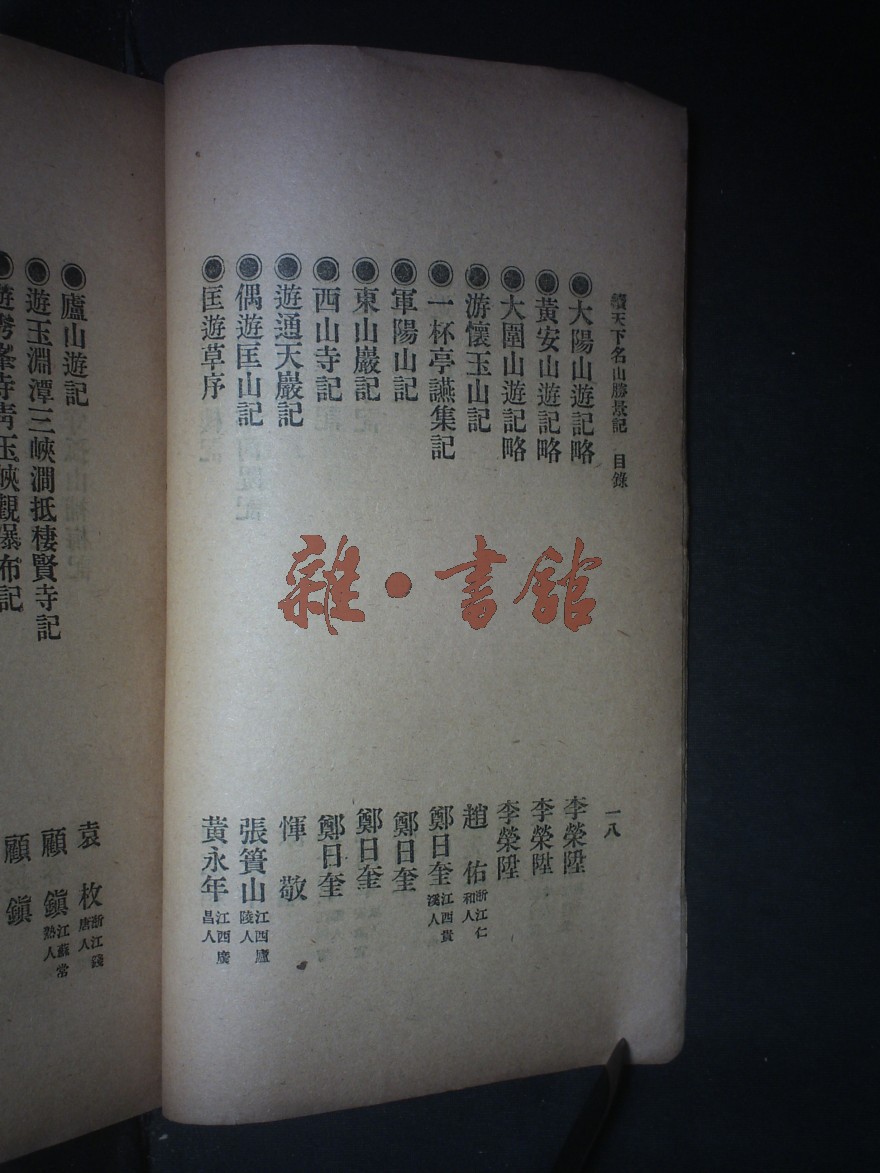 續天下名山勝景記 目錄 一八
◉大陽山遊記略 李榮陞
◉黃安山遊記略 李榮陞
◉大圍山遊記略 李榮陞
◉游懷玉山記 趙佑 浙江仁和人
◉一杯亭讌集記 鄭日奎 江西貴溪人
◉軍陽山記 鄭日奎
◉東山巖記 鄭日奎
◉西山寺記 鄭日奎
◉遊通天巖記 惲敬
◉偶遊匡山記 張簣山 江西廬陵人
◉匡遊草序 黃永年 江西廣昌人
◉廬山遊記 袁枚 浙江錢唐人
◉遊玉淵潭三峽澗抵棲賢寺記 顧鎮 江蘇常熟人
◉遊秀峯寺靑玉峽觀瀑布記 顧鎮
雜·書館